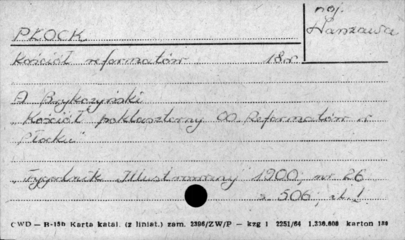 PŁOCK
woj. Warszawa
Kościół reformatów 18 w.
A Brykczyński
"Kościół poklasztorny OO. Reformatów w
Płocku"
"Tygodnik Illustrowany" 1900, nr 26
s. 506, il.1.
CWD — B-15b Karta katal. (z liniat.) zam. 2396/ZW/P — kzg 1 2251/64 1.236.608 karton